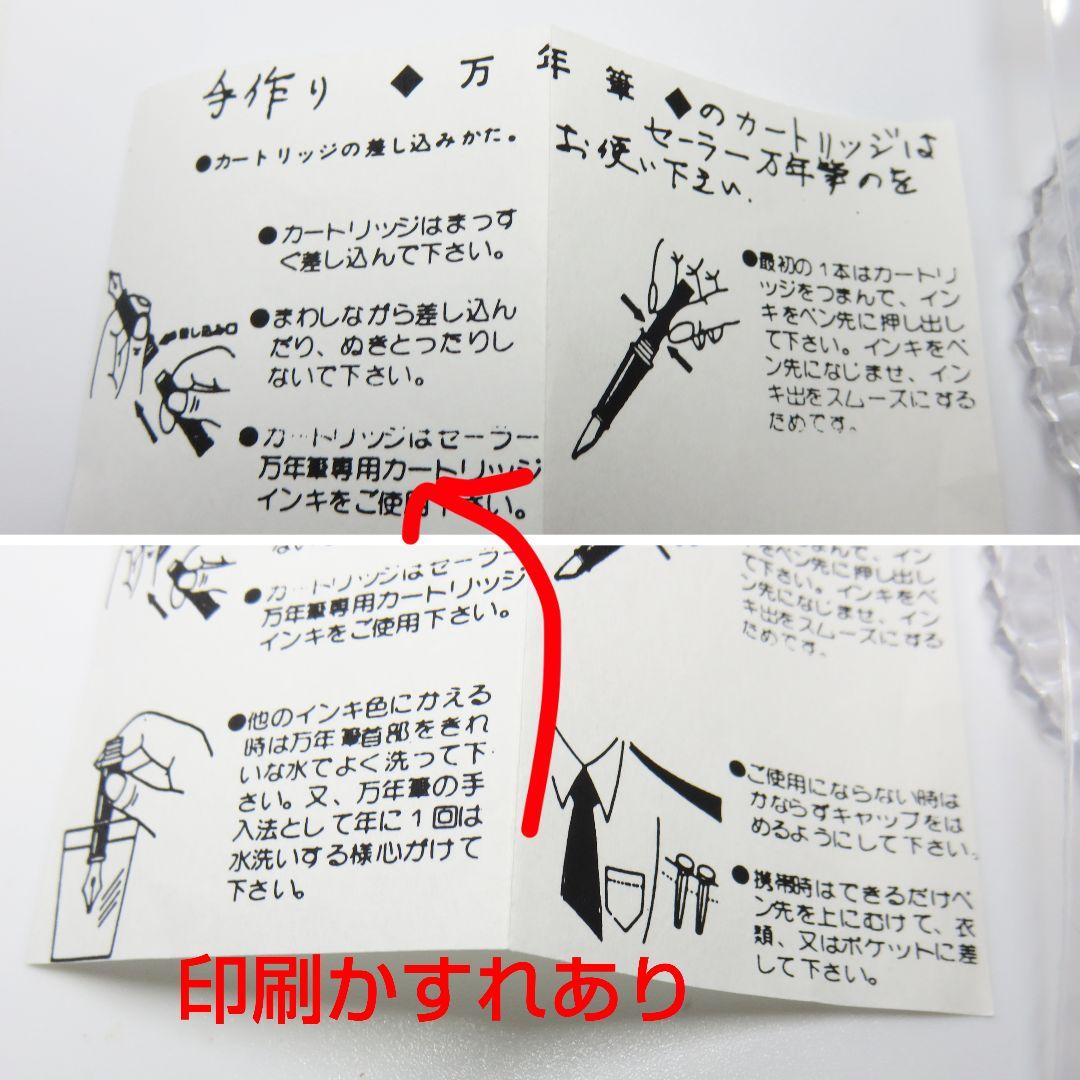 手作り ◆ 万年筆 ◆のカートリッジは
セーラー万年筆のを
お使い下さい.
●カートリッジの差し込みかた。
●カートリッジはまっす
ぐ差し込んで下さい。
●まわしながら差し込ん
だり、ぬきとったりし
ないで下さい。
●カートリッジはセーラー
万年筆専用カートリッジ
インキをご使用下さい。
●最初の1本はカートリ
ッジをつまんで、イン
キをペン先に押し出し
て下さい。インキをペ
ン先になじませ、イン
キ出をスムーズにする
ためです。
ないで
●カートリッジはセーラー
万年筆専用カートリッジ
インキをご使用下さい。
●他のインキ色にかえる
時は万年筆首部をきれ
いな水でよく洗って下
さい。又、万年筆の手
入法として年に1回は
水洗いする様心がけて
下さい。
をつまんで、イン
キをペン先に押し出し
て下さい。インキをペ
ン先になじませ、イン
キ出をスムーズにする
ためです。
●ご使用にならない時は
かならずキャップをは
めるようにして下さい。
●携帯時はできるだけペ
ン先を上にむけて、衣
類、又はポケットに差
して下さい。
印刷かすれあり